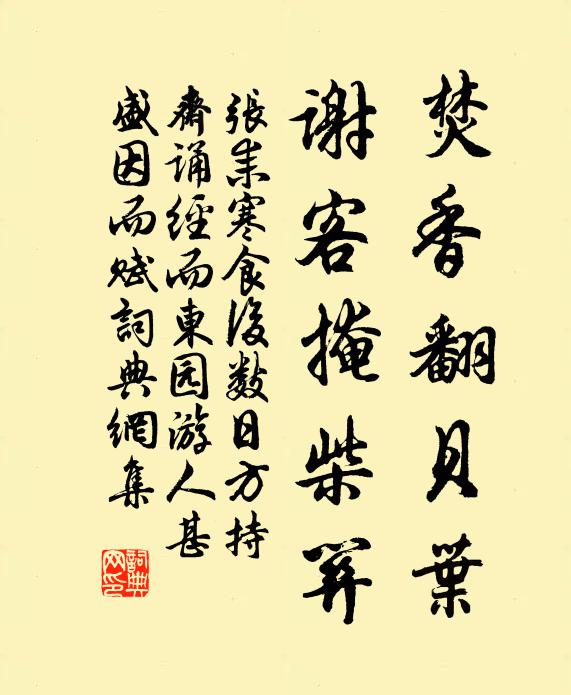 焚香翻貝葉
謝客掩柴關
張耒寒食後数日方持
齋誦經而東园游人甚
盛因而赋詞典網集
詞典网印